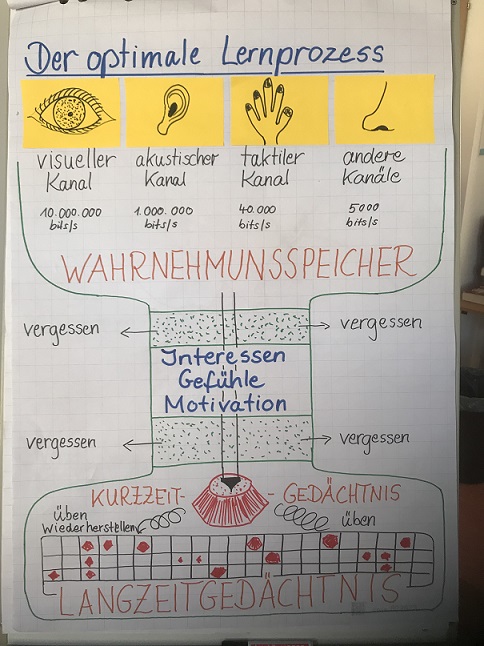 Der optimale Lernprozess
visueller Kanal
akustischer Kanal
taktiler Kanal
andere Kanäle
10.000.000 bits/s
1.000.000 bits/s
40.000 bits/s
5000 bits/s
WAHRNEHMUNSSPEICHER
vergessen
vergessen
Interessen
Gefühle
Motivation
vergessen
vergessen
KURZZEIT-
-GEDÄCHTNIS
üben
wiederherstellen
üben
LANGZEITGEDÄCHTNIS